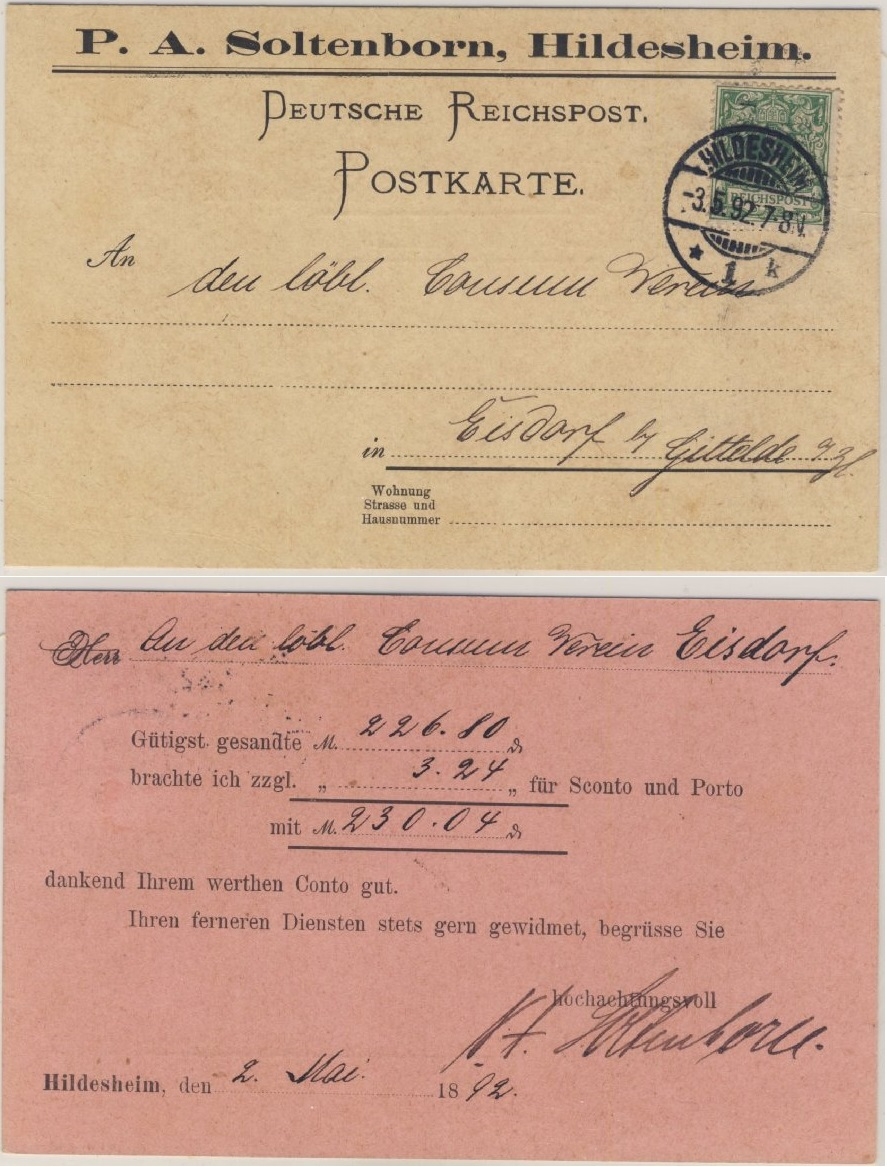 P. A. Soltenborn, Hildesheim.
DEUTSCHE REICHSPOST.
POSTKARTE.
REICHSPOST
HILDESHEIM
-3.5.92.7-8V.
* 1 k
An den löbl. Consum Verein
in Eisdorf b/ Gittelde
Wohnung
Strasse und
Hausnummer
Herr An den löbl. Consum Verein Eisdorf.
Gütigst gesandte M. 226.80 ₰
brachte ich zzgl. „ 3.24 „ für Sconto und Porto
mit M. 230.04 ₰
dankend Ihrem werthen Conto gut.
Ihren ferneren Diensten stets gern gewidmet, begrüsse Sie
hochachtungsvoll
P. A. Soltenborn.
Hildesheim, den 2. Mai. 1892.